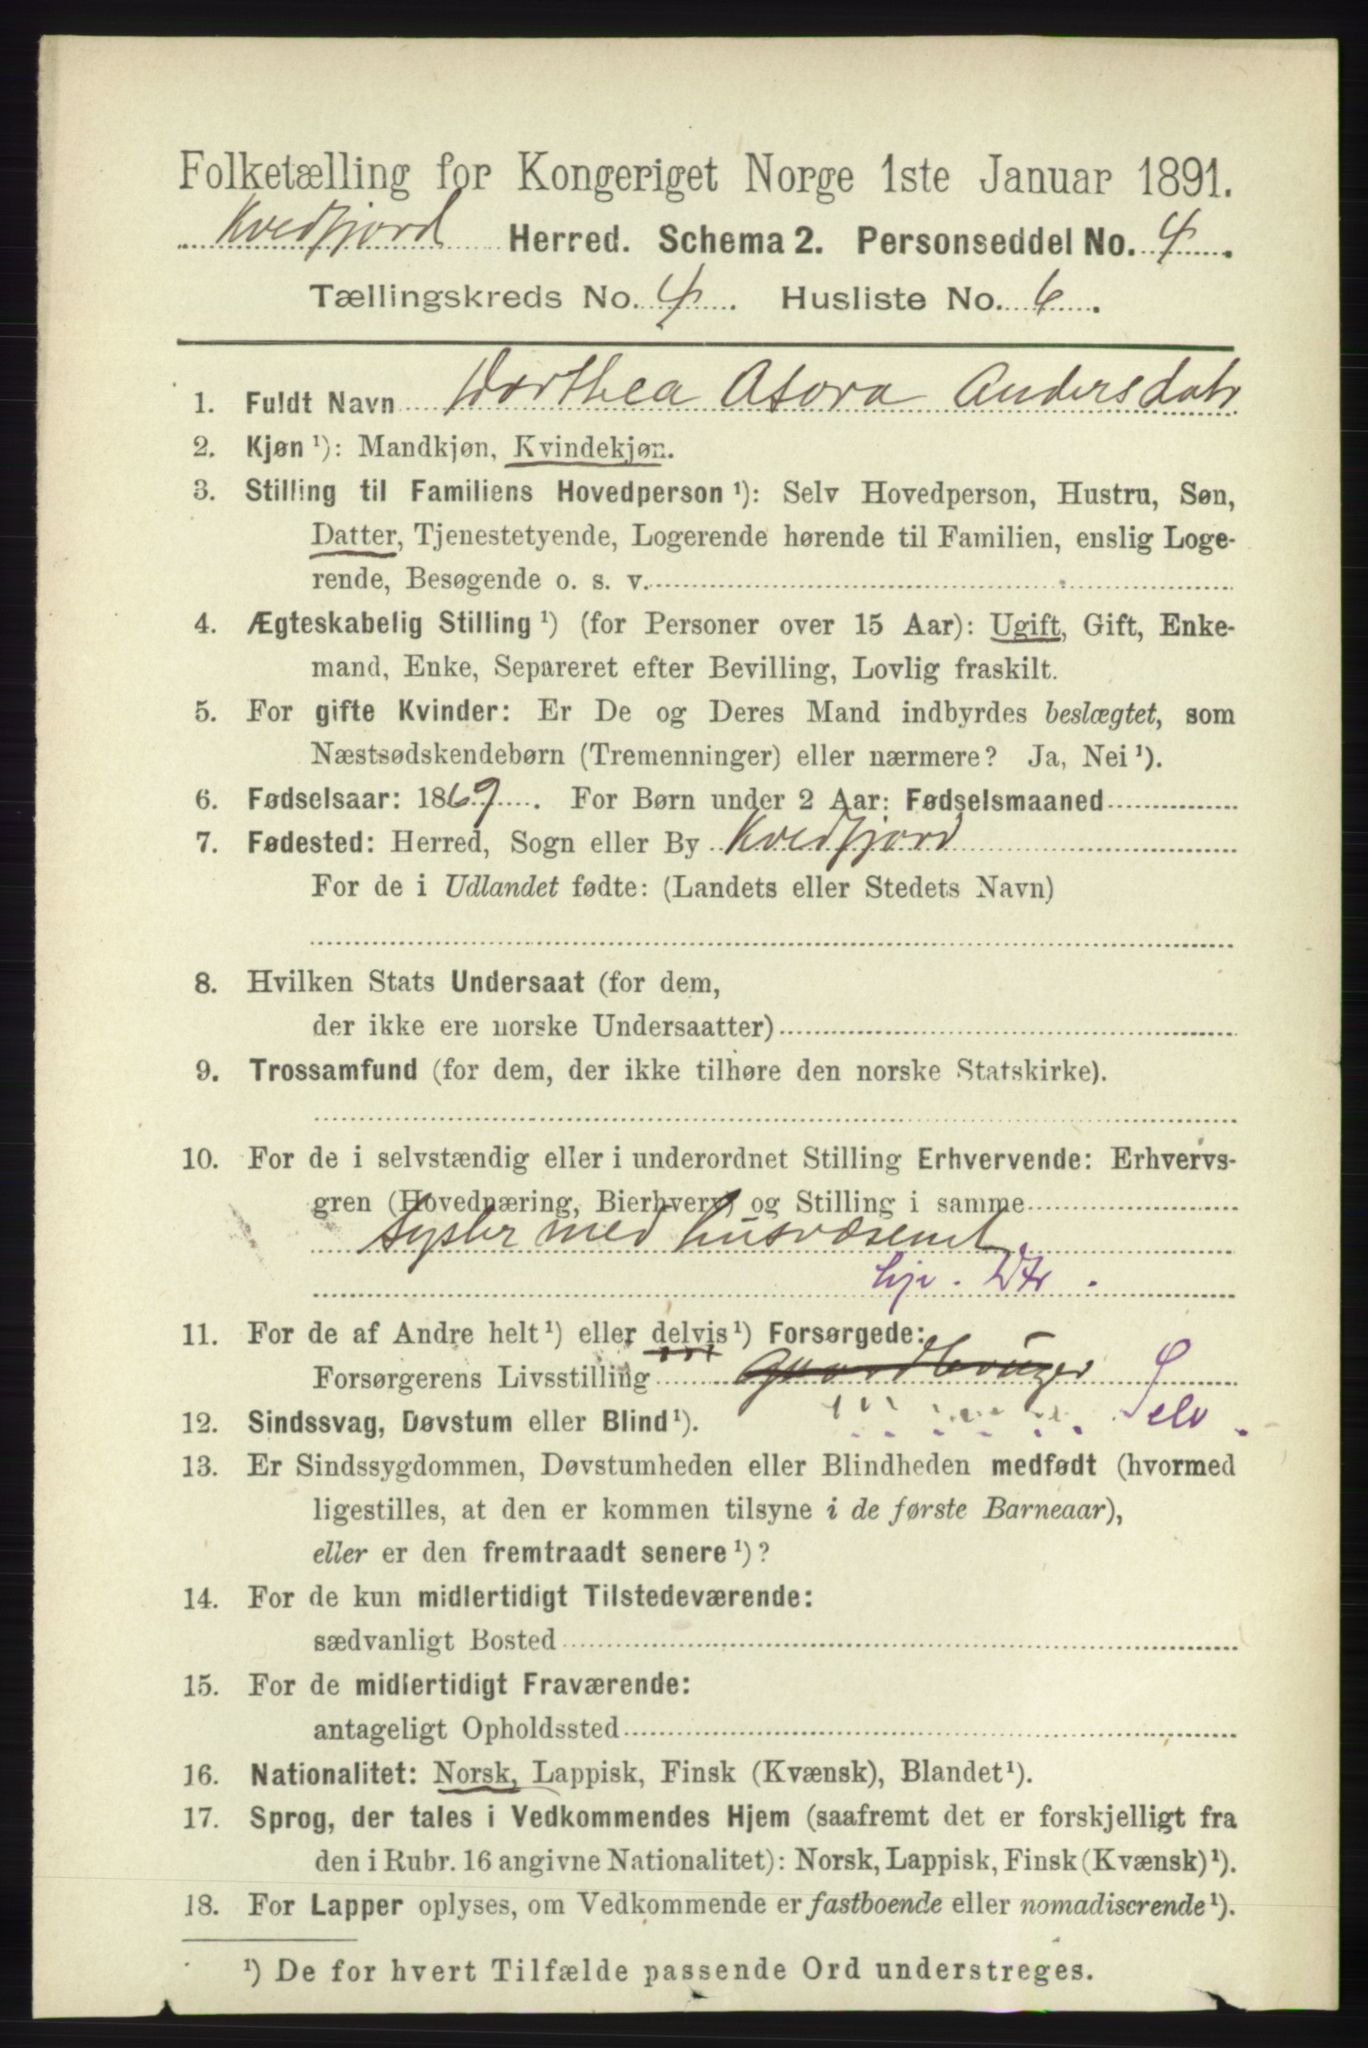 Folketælling for Kongeriget Norge 1ste Januar 1891.
Kvedfjord Herred. Schema 2. Personseddel No. 4.
Tællingskreds No. 4. Husliste No. 6.
1. Fuldt Navn Dorthea Asora Andersdatr
2. Kjøn ¹): Mandkjøn, Kvindekjøn.
3. Stilling til Familiens Hovedperson ¹): Selv Hovedperson, Hustru, Søn,
Datter, Tjenestetyende, Logerende hørende til Familien, enslig Loge-
rende, Besøgende o. s. v.
4. Ægteskabelig Stilling ¹) (for Personer over 15 Aar): Ugift, Gift, Enke-
mand, Enke, Separeret efter Bevilling, Lovlig fraskilt.
5. For gifte Kvinder: Er De og Deres Mand indbyrdes beslægtet, som
Næstsødskendebørn (Tremenninger) eller nærmere? Ja, Nei ¹).
6. Fødselsaar: 1869. For Børn under 2 Aar: Fødselsmaaned
7. Fødested: Herred, Sogn eller By Kvedfjord
For de i Udlandet fødte: (Landets eller Stedets Navn)
8. Hvilken Stats Undersaat (for dem,
der ikke ere norske Undersaatter)
9. Trossamfund (for dem, der ikke tilhøre den norske Statskirke).
10. For de i selvstændig eller i underordnet Stilling Erhvervende: Erhvervs-
gren (Hovednæring, Bierhverv) og Stilling i samme
sysler med husvæsenet
hje. Dtr.
11. For de af Andre helt ¹) eller delvis ¹) Forsørgede:
Forsørgerens Livsstilling Gaardbruger Selv.
12. Sindssvag, Døvstum eller Blind ¹).
13. Er Sindssygdommen, Døvstumheden eller Blindheden medfødt (hvormed
ligestilles, at den er kommen tilsyne i de første Barneaar),
eller er den fremtraadt senere ¹)?
14. For de kun midlertidigt Tilstedeværende:
sædvanligt Bosted
15. For de midlertidigt Fraværende:
antageligt Opholdssted
16. Nationalitet: Norsk, Lappisk, Finsk (Kvænsk), Blandet ¹).
17. Sprog, der tales i Vedkommendes Hjem (saafremt det er forskjelligt fra
den i Rubr. 16 angivne Nationalitet): Norsk, Lappisk, Finsk (Kvænsk) ¹).
18. For Lapper oplyses, om Vedkommende er fastboende eller nomadiserende ¹).
¹) De for hvert Tilfælde passende Ord understreges.